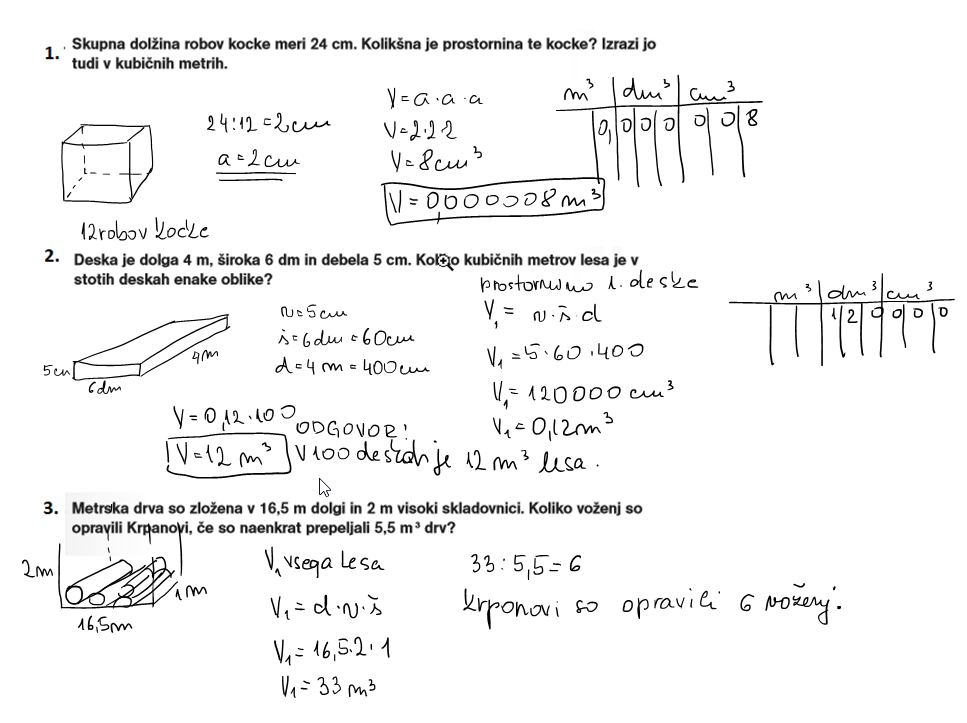 1. Skupna dolžina robov kocke meri 24 cm. Kolikšna je prostornina te kocke? Izrazi jo
tudi v kubičnih metrih.
24:12=2cm
a=2cm
12 robov kocke
V=a·a·a
V=2·2·2
V=8cm³
V=0,000008m³
m³ | dm³ | cm³
0, 0 0 0 0 0 8
2. Deska je dolga 4 m, široka 6 dm in debela 5 cm. Koliko kubičnih metrov lesa je v
stotih deskah enake oblike?
5cm
6dm
4m
v=5cm
š=6dm=60cm
d=4m=400cm
prostornino 1. deske
V₁=v·š·d
V₁=5·60·400
V₁=120000cm³
V₁=0,12m³
m³ | dm³ | cm³
1 2 0 0 0 0
V=0,12·100
V=12m³
ODGOVOR:
V 100 deskah je 12m³ lesa.
3. Metrska drva so zložena v 16,5 m dolgi in 2 m visoki skladovnici. Koliko voženj so
opravili Krpanovi, če so naenkrat prepeljali 5,5 m³ drv?
2m
1m
16,5m
V₁ vsega lesa
V₁=d·v·š
V₁=16,5·2·1
V₁=33m³
33:5,5=6
Krponovi so opravili 6 voženj.